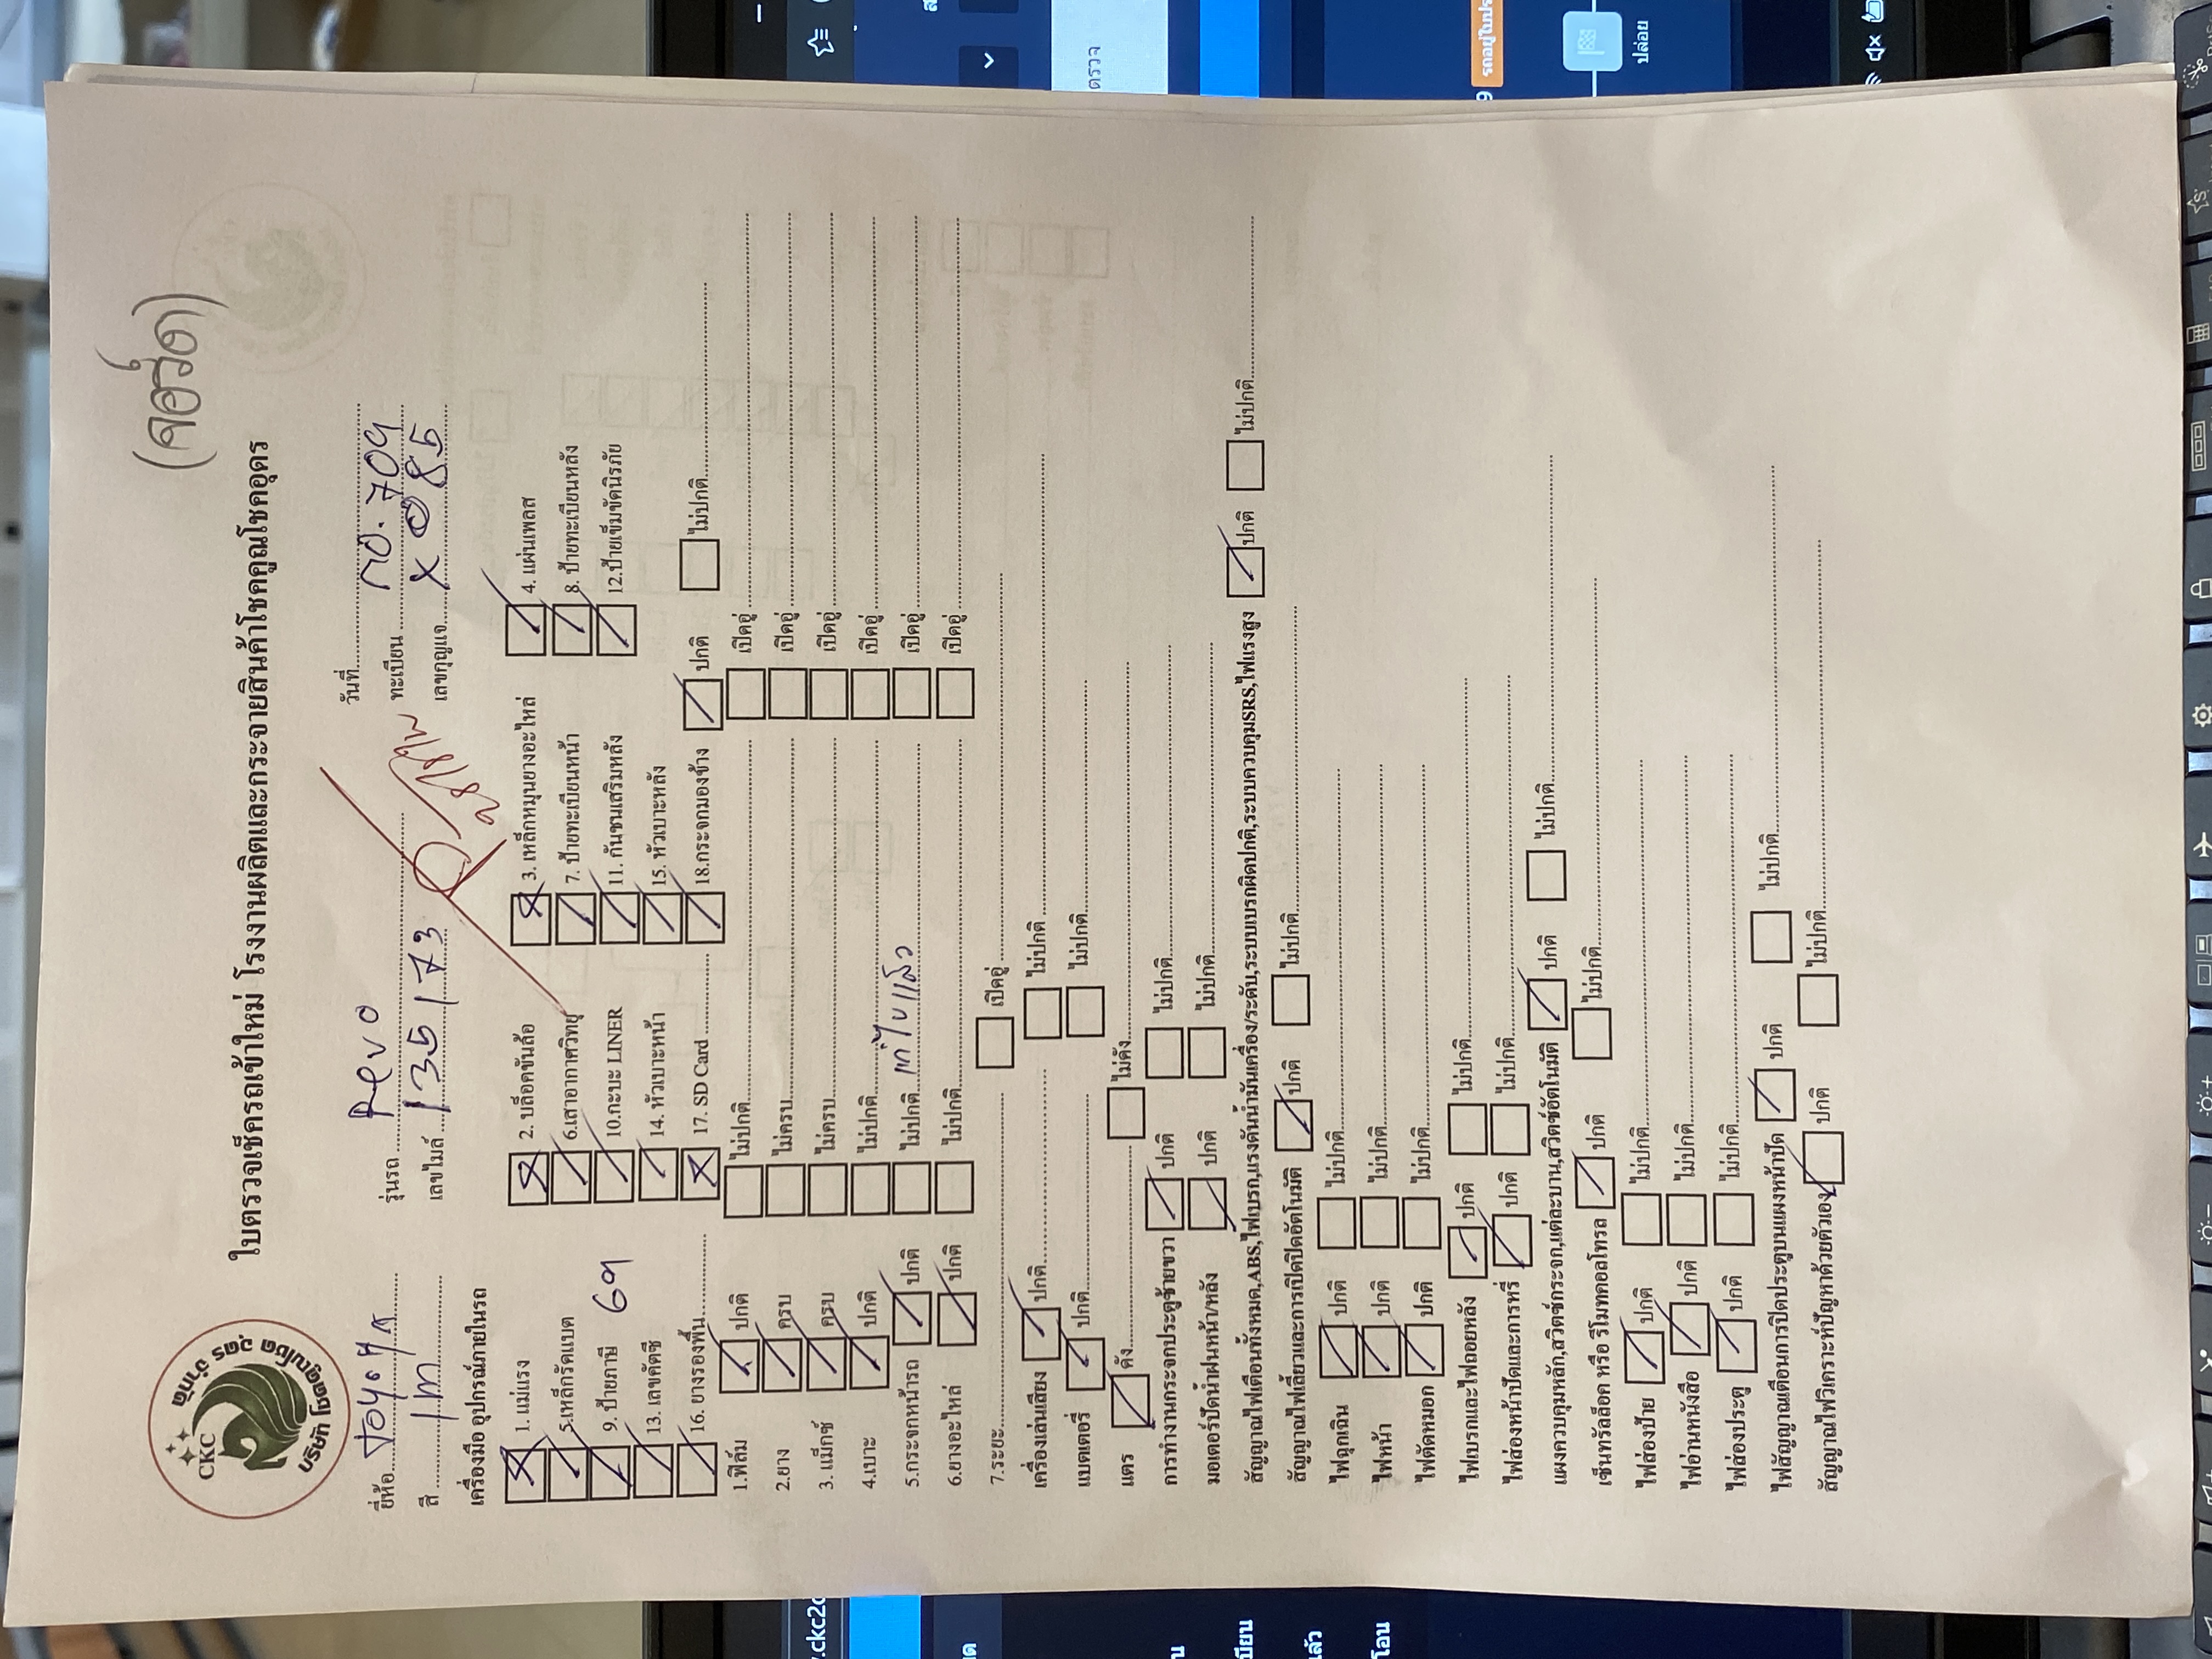 (จอร์ด)
CKC
บริษัท โชคคูณโชค อุดร จำกัด
ใบตรวจเช็ครถเข้าใหม่ โรงงานผลิตและกระจายสินค้าโชคคูณโชคอุดร
ยี่ห้อ TOYOTA รุ่นรถ Revo วันที่
สี เทา เลขไมล์ 135173 ทะเบียน กอ.709
เลขกุญแจ X085
เครื่องมือ อุปกรณ์ภายในรถ
1. แม่แรง 2. บล็อคขันล้อ 3. เหล็กหมุนยางอะไหล่ 4. แผ่นเพลส
5.เหล็กรัดแบต 6.เสาอากาศวิทยุ 7. ป้ายทะเบียนหน้า 8. ป้ายทะเบียนหลัง
9. ป้ายภาษี 69 10.กะบะ LINER 11. กันชนเสริมหลัง 12.ป้ายเข็มขัดนิรภัย
13. เลขคัตซี 14. หัวเบาะหน้า 15. หัวเบาะหลัง
16. ยางรองพื้น 17. SD Card 18.กระจกมองข้าง ปกติ ไม่ปกติ
1.ฟิล์ม ปกติ ไม่ปกติ เปิดอู่
2.ยาง ครบ ไม่ครบ เปิดอู่
3. แม็กซ์ ครบ ไม่ครบ เปิดอู่
4.เบาะ ปกติ ไม่ปกติ เปิดอู่
5.กระจกหน้ารถ ปกติ ไม่ปกติ เปิดอู่
6.ยางอะไหล่ ปกติ ไม่ปกติ เปิดอู่
7.ระยะ เปิดอู่
เครื่องเล่นเสียง ปกติ ไม่ปกติ
แบตเตอรี่ ปกติ ไม่ปกติ
แตร ดัง ไม่ดัง
การทำงานกระจกประตูซ้ายขวา ปกติ ไม่ปกติ
มอเตอร์ปัดน้ำฝนหน้า/หลัง ปกติ ไม่ปกติ
สัญญาณไฟเตือนทั้งหมด,ABS,ไฟเบรก,แรงดันน้ำมันเครื่อง/ระดับ,ระบบเบรกผิดปกติ,ระบบควบคุมSRS,ไฟแรงสูง ปกติ ไม่ปกติ
สัญญาณไฟเลี้ยวและการเปิดปิดอัตโนมัติ ปกติ ไม่ปกติ
ไฟฉุกเฉิน ปกติ ไม่ปกติ
ไฟหน้า ปกติ ไม่ปกติ
ไฟตัดหมอก ปกติ ไม่ปกติ
ไฟเบรกและไฟถอยหลัง ปกติ ไม่ปกติ
ไฟส่องหน้าปัดและการหรี่ ปกติ ไม่ปกติ
แผงควบคุมหลัก,สวิตช์กระจก,แต่ละบาน,สวิตช์อัตโนมัติ ปกติ ไม่ปกติ
เซ็นทรัลล็อค หรือ รีโมทคอลโทรล ปกติ ไม่ปกติ
ไฟส่องป้าย ปกติ ไม่ปกติ
ไฟอ่านหนังสือ ปกติ ไม่ปกติ
ไฟส่องประตู ปกติ ไม่ปกติ
ไฟสัญญาณเตือนการปิดประตูบนแผงหน้าปัด ปกติ ไม่ปกติ
สัญญาณไฟวิเคราะห์ปัญหาด้วยตัวเอง ปกติ ไม่ปกติ
ตรวจ
ปล่อย